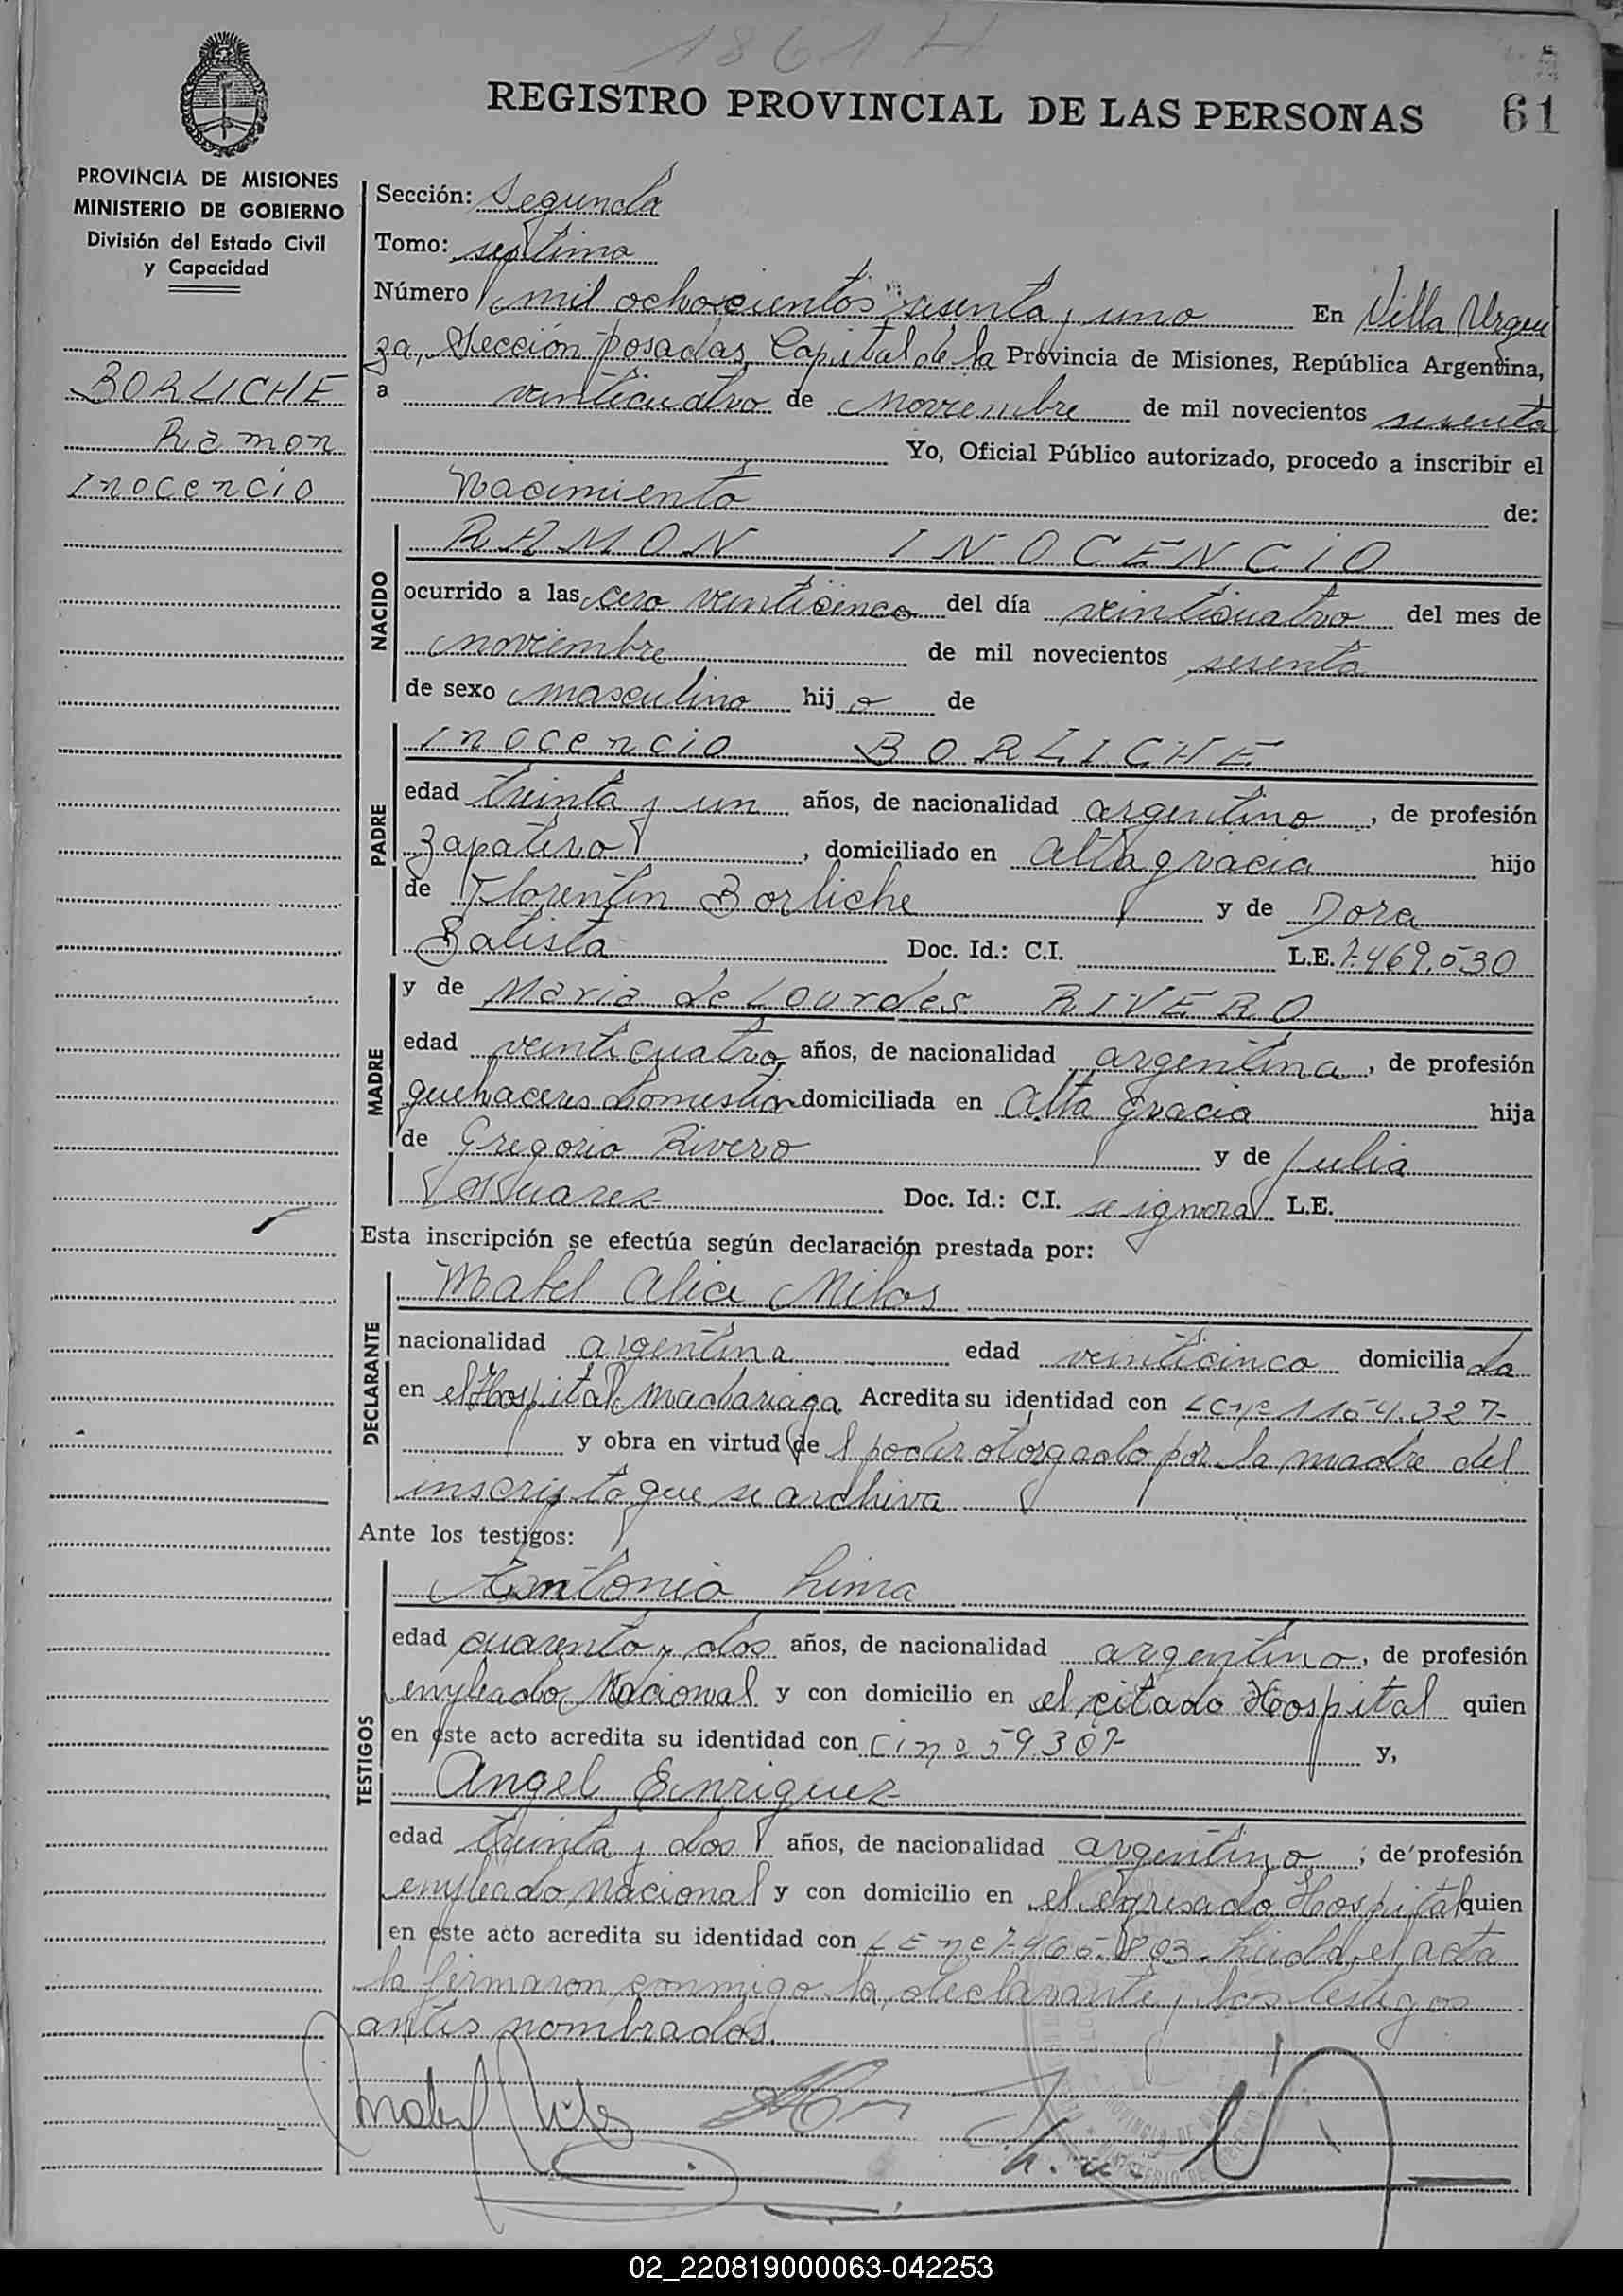 1861 H
REGISTRO PROVINCIAL DE LAS PERSONAS 61
PROVINCIA DE MISIONES
MINISTERIO DE GOBIERNO
División del Estado Civil
y Capacidad
BORLICHE
Ramon
Inocencio
Sección: Segunda
Tomo: septimo
Número mil ochocientos sesenta y uno En Villa Urqui
za, Sección Posadas, Capital de la Provincia de Misiones, República Argentina,
a veinticuatro de noviembre de mil novecientos sesenta
Yo, Oficial Público autorizado, procedo a inscribir el
Nacimiento de:
NACIDO
RAMON INOCENCIO
ocurrido a las cero veinticinco del día veinticuatro del mes de
noviembre de mil novecientos sesenta
de sexo masculino hijo de
PADRE
Inocencio BORLICHE
edad treinta y un años, de nacionalidad argentino, de profesión
zapatero, domiciliado en Alta gracia hijo
de Florentin Borliche y de Dora
Batista Doc. Id.: C.I. L.E. 7.469.530
MADRE
y de Maria de Lourdes RIVERO
edad veinticuatro años, de nacionalidad argentina, de profesión
quehaceres domestico domiciliada en Alta Gracia hija
de Gregorio Rivero y de Julia
Suarez Doc. Id.: C.I. se ignora L.E.
Esta inscripción se efectúa según declaración prestada por:
DECLARANTE
Mabel Alice Milos
nacionalidad argentina edad veinticinco domiciliada
en el Hospital Madariaga Acredita su identidad con LC nº 1154.327-
y obra en virtud del poder otorgado por la madre del
inscripto que se archiva
Ante los testigos:
TESTIGOS
Antonio Lima
edad cuarenta y dos años, de nacionalidad argentino, de profesión
empleado Nacional y con domicilio en el citado Hospital quien
en este acto acredita su identidad con CI nº 59.307- y,
Angel Enriquez
edad treinta y dos años, de nacionalidad argentino; de profesión
empleado nacional y con domicilio en el expresado Hospital quien
en este acto acredita su identidad con LE nº 7.465.803. Leida el acta
la firmaron conmigo la declarante y los testigos
antes nombrados.
Mabel Milos
02_220819000063-042253